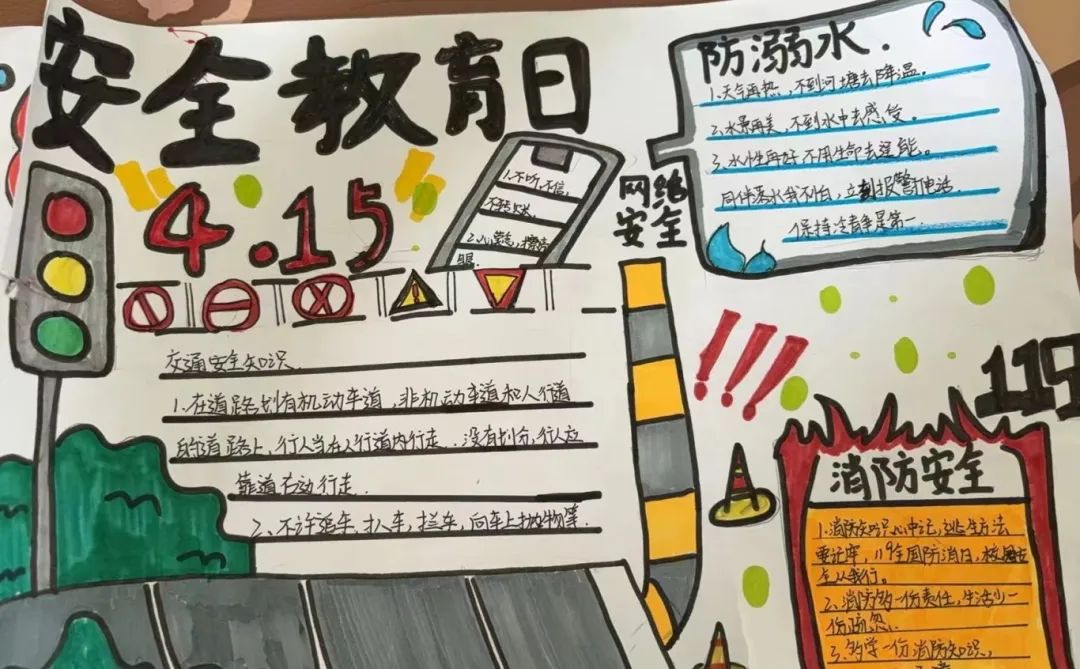 安全教育日
4.15
1.不听,不信,
不转发。
网络
安全
防溺水.
1.天气再热,不到河塘去降温。
2.水景再美,不到水中去感受。
3.水性再好不用生命去逞能。
同伴落水我不怕,立刻报警打电话.
保持冷静是第一.
交通安全知识.
1.在道路划有机动车道,非机动车道和人行道
的道路上,行人当在人行道内行走.没有划分,行人应
靠道右动行走.
2、不许追车,扒车,拦车,向车上抛物等.
!!!
119
消防安全
1.消防知识心中记,逃生方法
要记牢,119全国防消日,
全从我行。
2、消防多一份责任,生活少一
份疏忽.
3、多学一份消防知识,